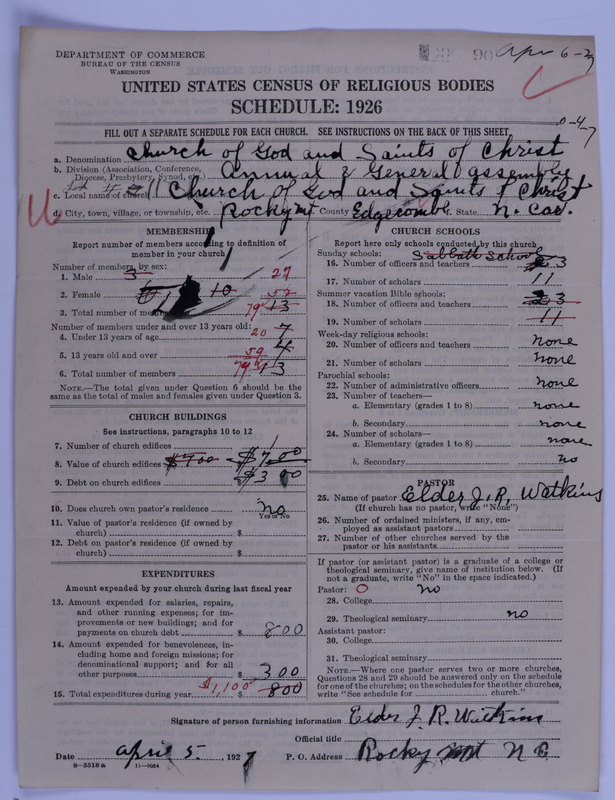 DEPARTMENT OF COMMERCE
BUREAU OF THE CENSUS
WASHINGTON
90 Apr 6-27
UNITED STATES CENSUS OF RELIGIOUS BODIES
SCHEDULE: 1926
0-4-7
FILL OUT A SEPARATE SCHEDULE FOR EACH CHURCH. SEE INSTRUCTIONS ON THE BACK OF THIS SHEET
a. Denomination Church of God and Saints of Christ
b. Division (Association, Conference, Diocese, Presbytery, Synod, etc.) Annual & General assembly
c. Local name of church Church of God and Saints of Christ
d. City, town, village, or township, etc. Rocky mt County Edgecombe State N. Car.
MEMBERSHIP
Report number of members according to definition of member in your church
Number of members by sex:
1. Male 3 27
2. Female 10 52
3. Total number of members 79 13
Number of members under and over 13 years old:
4. Under 13 years of age 20 7
5. 13 years old and over 59 4
6. Total number of members 79 13
NOTE.—The total given under Question 6 should be the same as the total of males and females given under Question 3.
CHURCH BUILDINGS
See instructions, paragraphs 10 to 12
7. Number of church edifices 1
8. Value of church edifices $700 $700
9. Debt on church edifices $300
10. Does church own pastor's residence no
Yes or No
11. Value of pastor's residence (if owned by church) $
12. Debt on pastor's residence (if owned by church) $
EXPENDITURES
Amount expended by your church during last fiscal year
13. Amount expended for salaries, repairs, and other running expenses; for improvements or new buildings; and for payments on church debt $ 800
14. Amount expended for benevolences, including home and foreign missions; for denominational support; and for all other purposes $ 300
15. Total expenditures during year $1,100 $ 800
CHURCH SCHOOLS
Report here only schools conducted by this church
Sunday schools: Sabbath School
16. Number of officers and teachers 3
17. Number of scholars 11
Summer vacation Bible schools:
18. Number of officers and teachers 3
19. Number of scholars 11
Week-day religious schools:
20. Number of officers and teachers none
21. Number of scholars none
Parochial schools:
22. Number of administrative officers none
23. Number of teachers—
a. Elementary (grades 1 to 8) none
b. Secondary none
24. Number of scholars—
a. Elementary (grades 1 to 8) none
b. Secondary no
PASTOR
25. Name of pastor Elder J. R. Watkins
(If church has no pastor, write "None")
26. Number of ordained ministers, if any, employed as assistant pastors
27. Number of other churches served by the pastor or his assistants
If pastor (or assistant pastor) is a graduate of a college or theological seminary, give name of institution below. (If not a graduate, write "No" in the space indicated.)
Pastor: O no
28. College
29. Theological seminary no
Assistant pastor:
30. College
31. Theological seminary
NOTE.—Where one pastor serves two or more churches, Questions 28 and 29 should be answered only on the schedule for one of the churches; on the schedules for the other churches, write "See schedule for church."
Signature of person furnishing information Elder J. R. Watkins
Official title
Date April 5. 1927 P. O. Address Rocky mt N C
8-5518a 11-9054